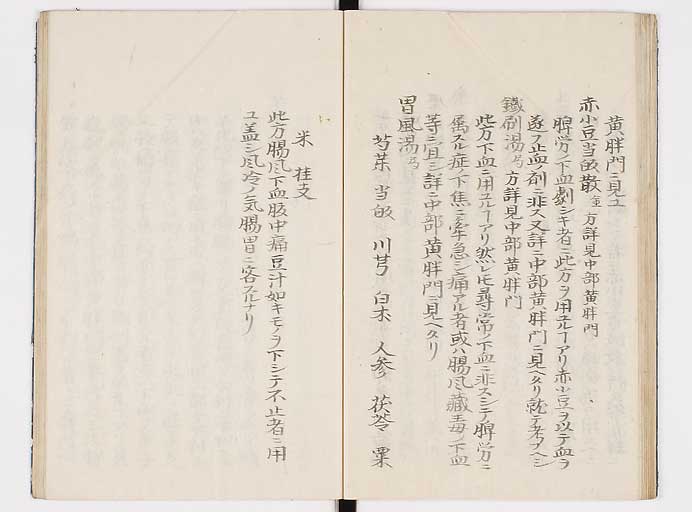 黄胖門ニ見ユ
赤小豆当皈散 方詳見中部黄胖門
脾労ノ下血劇シキ者ニ此方ヲ用ユルヿアリ赤小豆ヲ以テ血ヲ
遂フ止血ノ剤ニ非ス又詳ニ中部黄胖門ニ見ヘタリ就テ考フヘシ
鐵刷湯 方詳見中部黄胖門
此方下血ニ用ユルヿアリ然レ𪜈尋常ノ下血ニ非スシテ脾労ニ
属スル症ノ下焦ニ牽急シ痛アル者或ハ腸風藏毒ノ下血
等ニ宜シ詳ニ中部黄胖門ニ見ヘタリ
胃風湯
芍薬 当皈 川芎 白朮 人参 茯苓 粟
米 桂支
此方腸風下血腹中痛豆汁如キモノヲ下シテ不止者ニ用
ユ盖シ風冷ノ気腸胃ニ客スルナリ